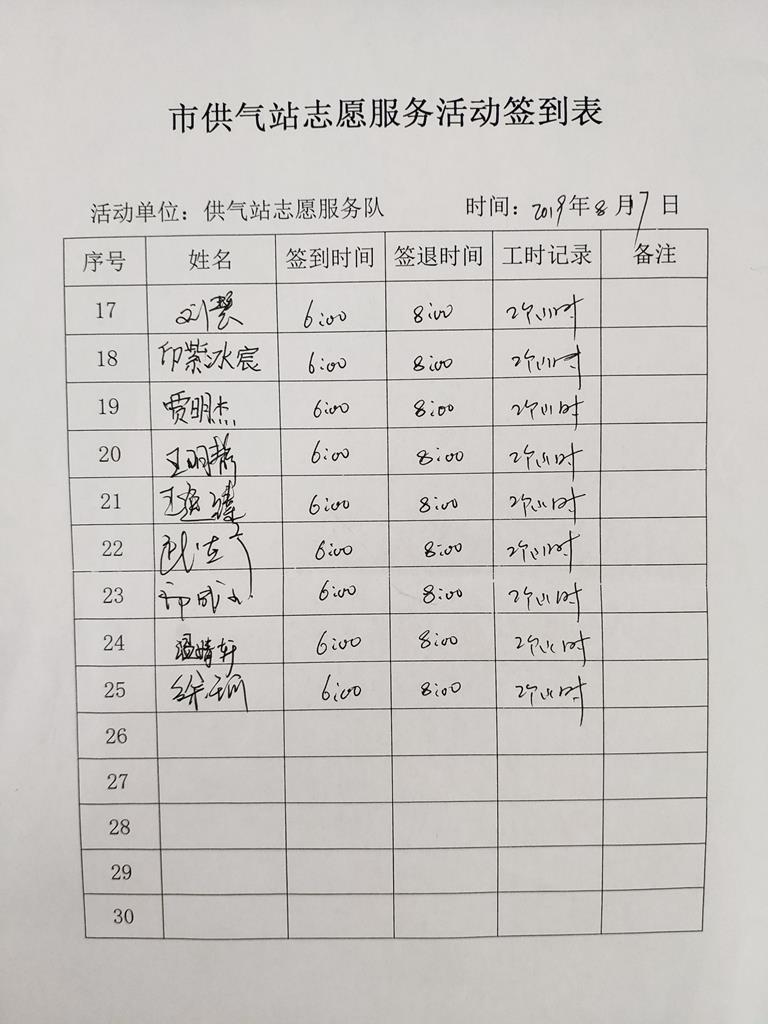 市供气站志愿服务活动签到表
活动单位：供气站志愿服务队 时间：2019年8月7日
序号 姓名 签到时间 签退时间 工时记录 备注
17 刘慧 6:00 8:00 2个小时
18 印紫冰宸 6:00 8:00 2个小时
19 贾明杰 6:00 8:00 2个小时
20 王明静 6:00 8:00 2个小时
21 王 6:00 8:00 2个小时
22 武 6:00 8:00 2个小时
23 6:00 8:00 2个小时
24 温婧轩 6:00 8:00 2个小时
25 徐珊 6:00 8:00 2个小时
26
27
28
29
30